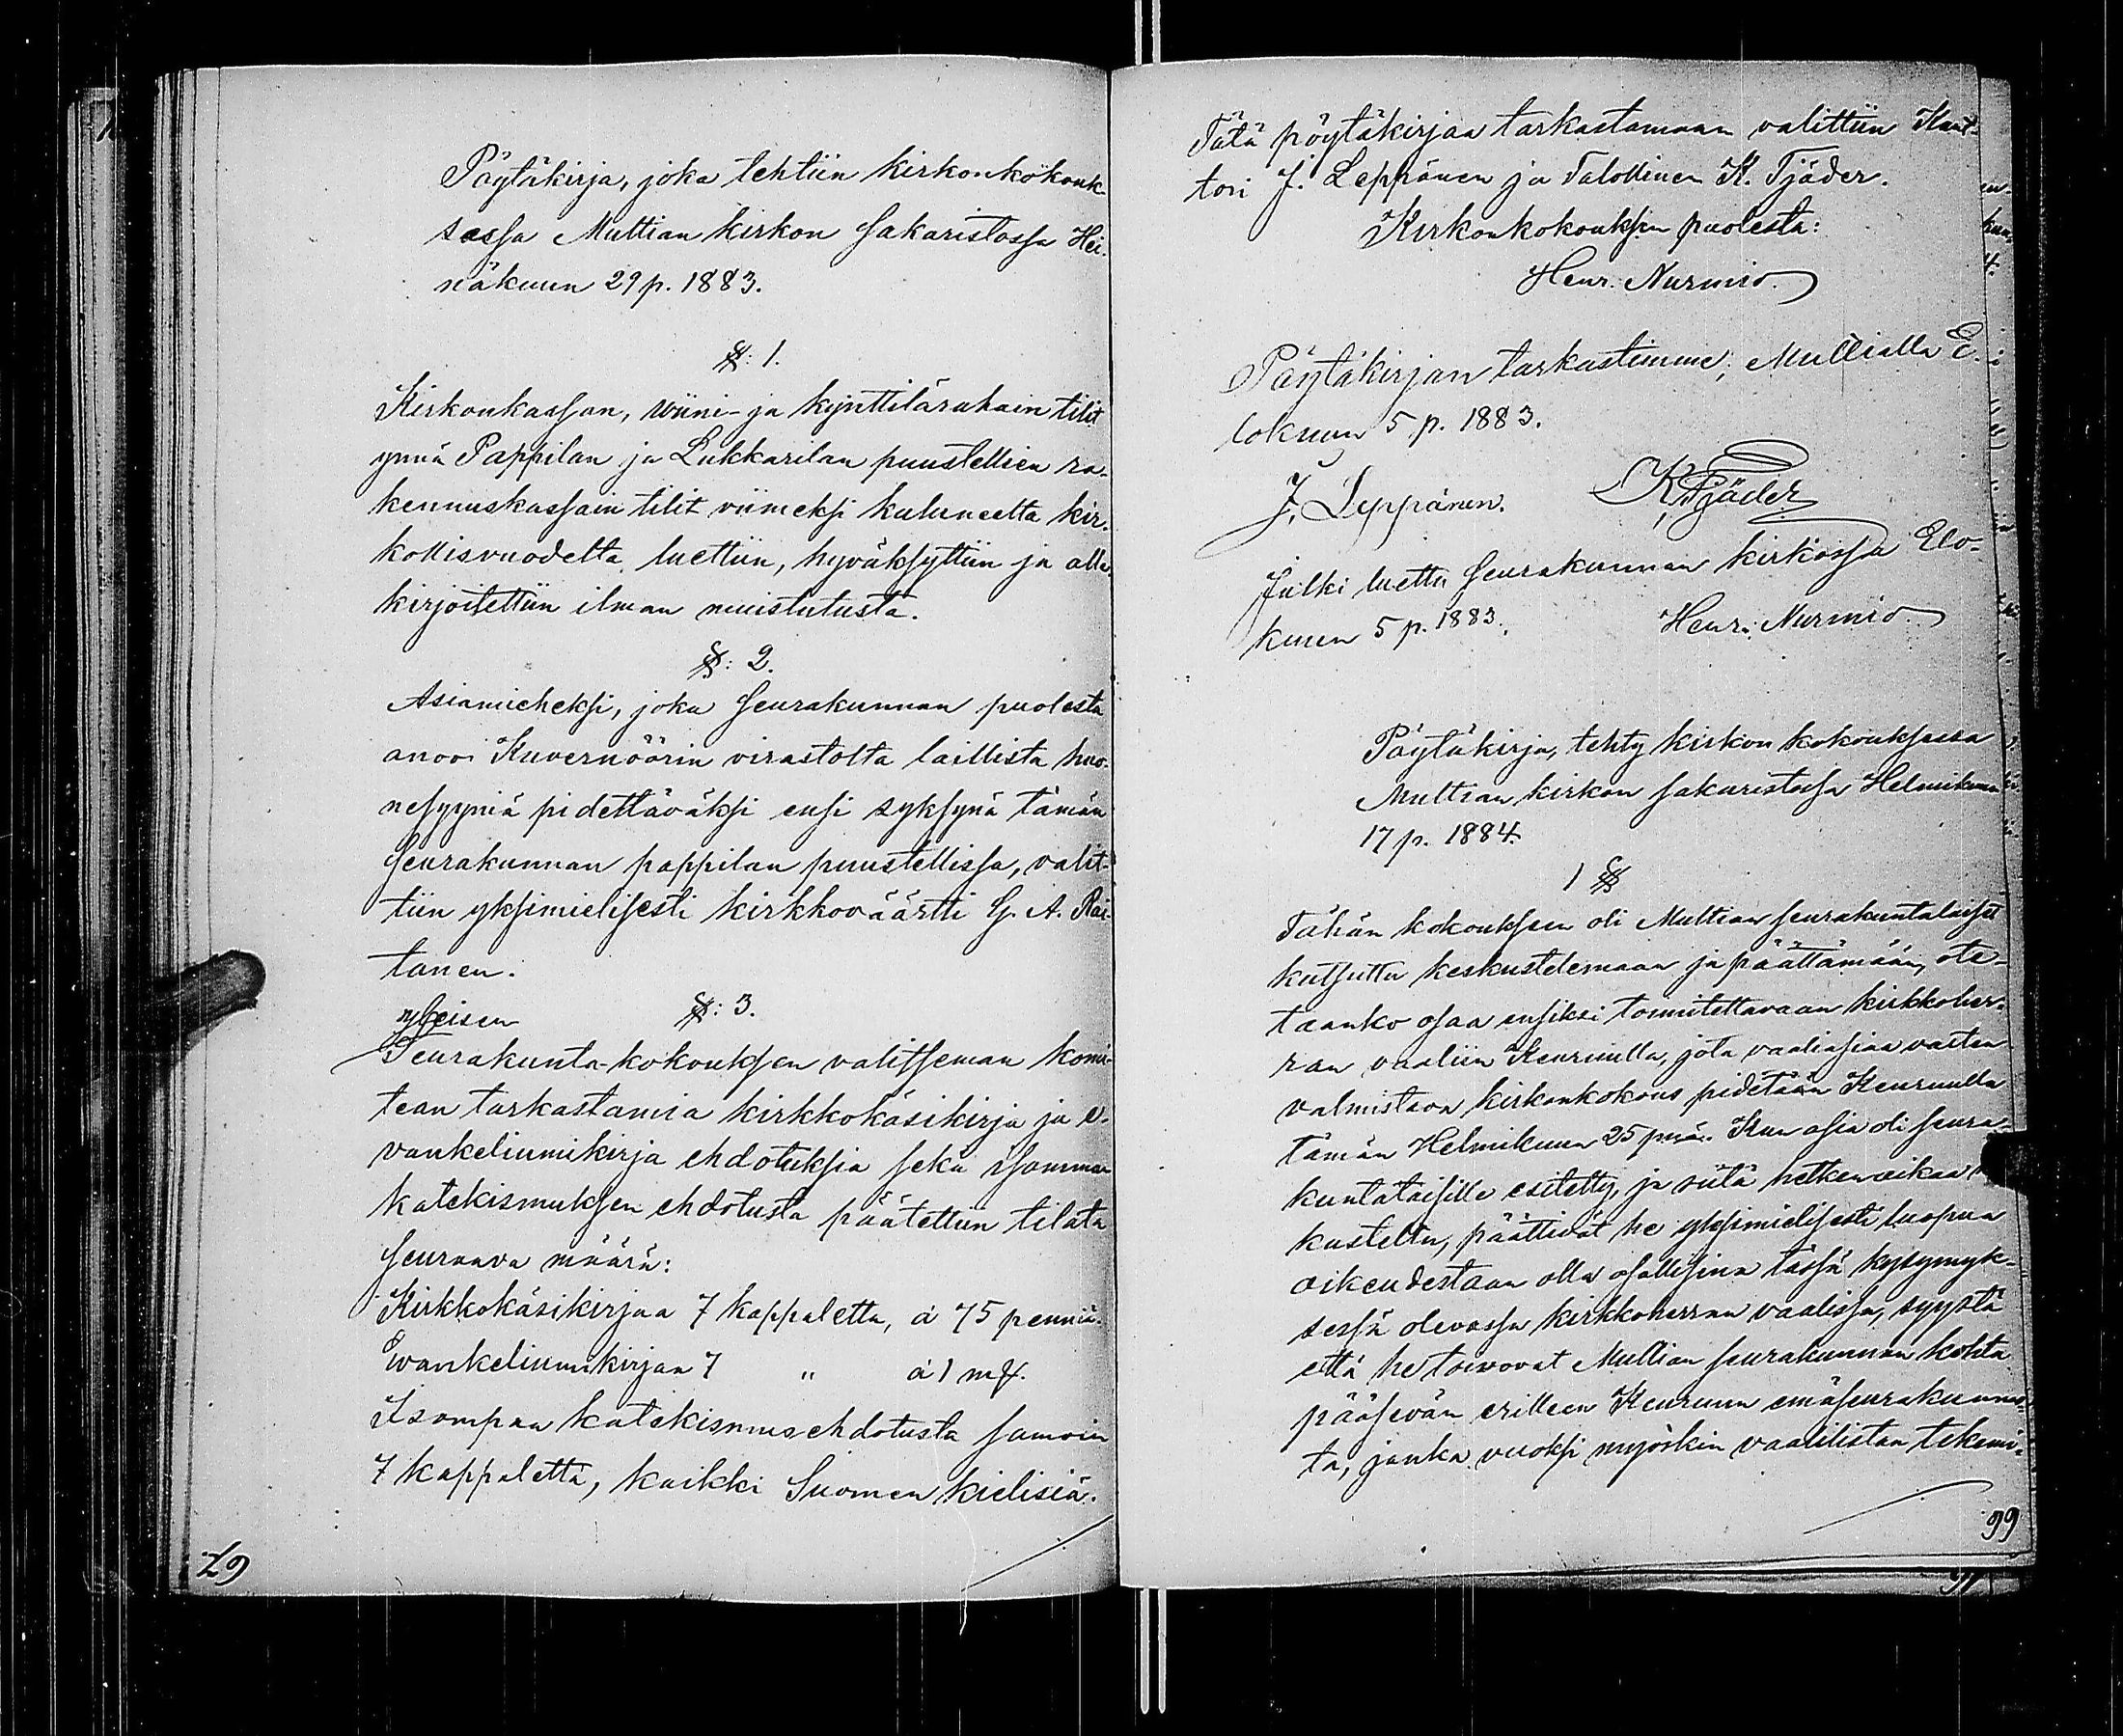 Pöytäkirja, joka tehtiin kirkonkokouk-
sessa Multian kirkon sakaristossa Hei-
näkuun 29 p. 1883.
§: 1.
Kirkonkassan, wiini- ja kynttilärahain tilit
ynnä Pappilan ja Lukkarilan puustellien ra-
kennuskassain tilit viimeksi kuluneelta kir-
kollisvuodelta, luettiin, hyväksyttiin ja alle-
kirjoitettiin ilman muistutusta.
§: 2.
Asiamieheksi, joka seurakunnan puolesta
anoo Kuvernöörin virastolta laillista huo-
nesyyniä pidettäväksi ensi syksynä tämän
seurakunnan pappilan puustellissa, valit-
tiin yksimielisesti kirkkoväärtti G. A. Rai-
tanen.
§: 3.
yleisen
Seurakunta-kokouksen valitseman komi-
tean tarkastamia kirkkokäsikirja ja e-
vankeliumikirja ehdotuksia seka isomman
katekismuksen ehdotusta päätettiin tilata
seuraava määrä:
Kirkkokäsikirjaa 7 kappaletta, à 75 penniä.
Ewankeliumikirjaa 7 " à 1 mk.
Isompaa katekismusehdotusta samoin
7 kappaletta, kaikki Suomen kielisiä.
67
Tätä pöytäkirjaa tarkastamaan valittiin Kant-
tori J. Leppänen ja Talollinen K. Tjäder.
Kirkonkokouksen puolesta:
Henr. Nurmio.
Pöytäkirjan tarkastimme; Multialla E-
lokuun 5 p. 1883.
J. Leppänen. K Tjäder
Julki luettu seurakunnan kirkossa Elo-
kuun 5 p. 1883. Henr. Nurmio.
Pöytäkirja, tehty kirkon kokouksessa
Multian kirkon sakaristossa Helmikuun
17 p. 1884.
1 §
Tähän kokouksen oli Multian seurakuntalaiset
kutsuttu keskustelemaan ja päättämään, ote-
taanko osaa ensiksi toimitettavaan kirkkoher-
ran vaaliin Keuruulla, jota vaaliasiaa varten
valmistava kirkonkokous pidetään Keuruulla
tämän Helmikuun 25 pnä. Kun asia oli seura-
kuntalaisille esitetty, ja siitä hetken aikaa
kusteltu, päättivät he yksimielisesti luopua
oikeudestaan olla osallisina tässä kysymyk-
sessä olevassa kirkkoherran vaalissa, syystä
että he toivovat Multian seurakunnan kohta
pääsevän erilleen Keuruun emäseurakunnas-
ta, jonka vuoksi myöskin vaalilistan tekemi-
99